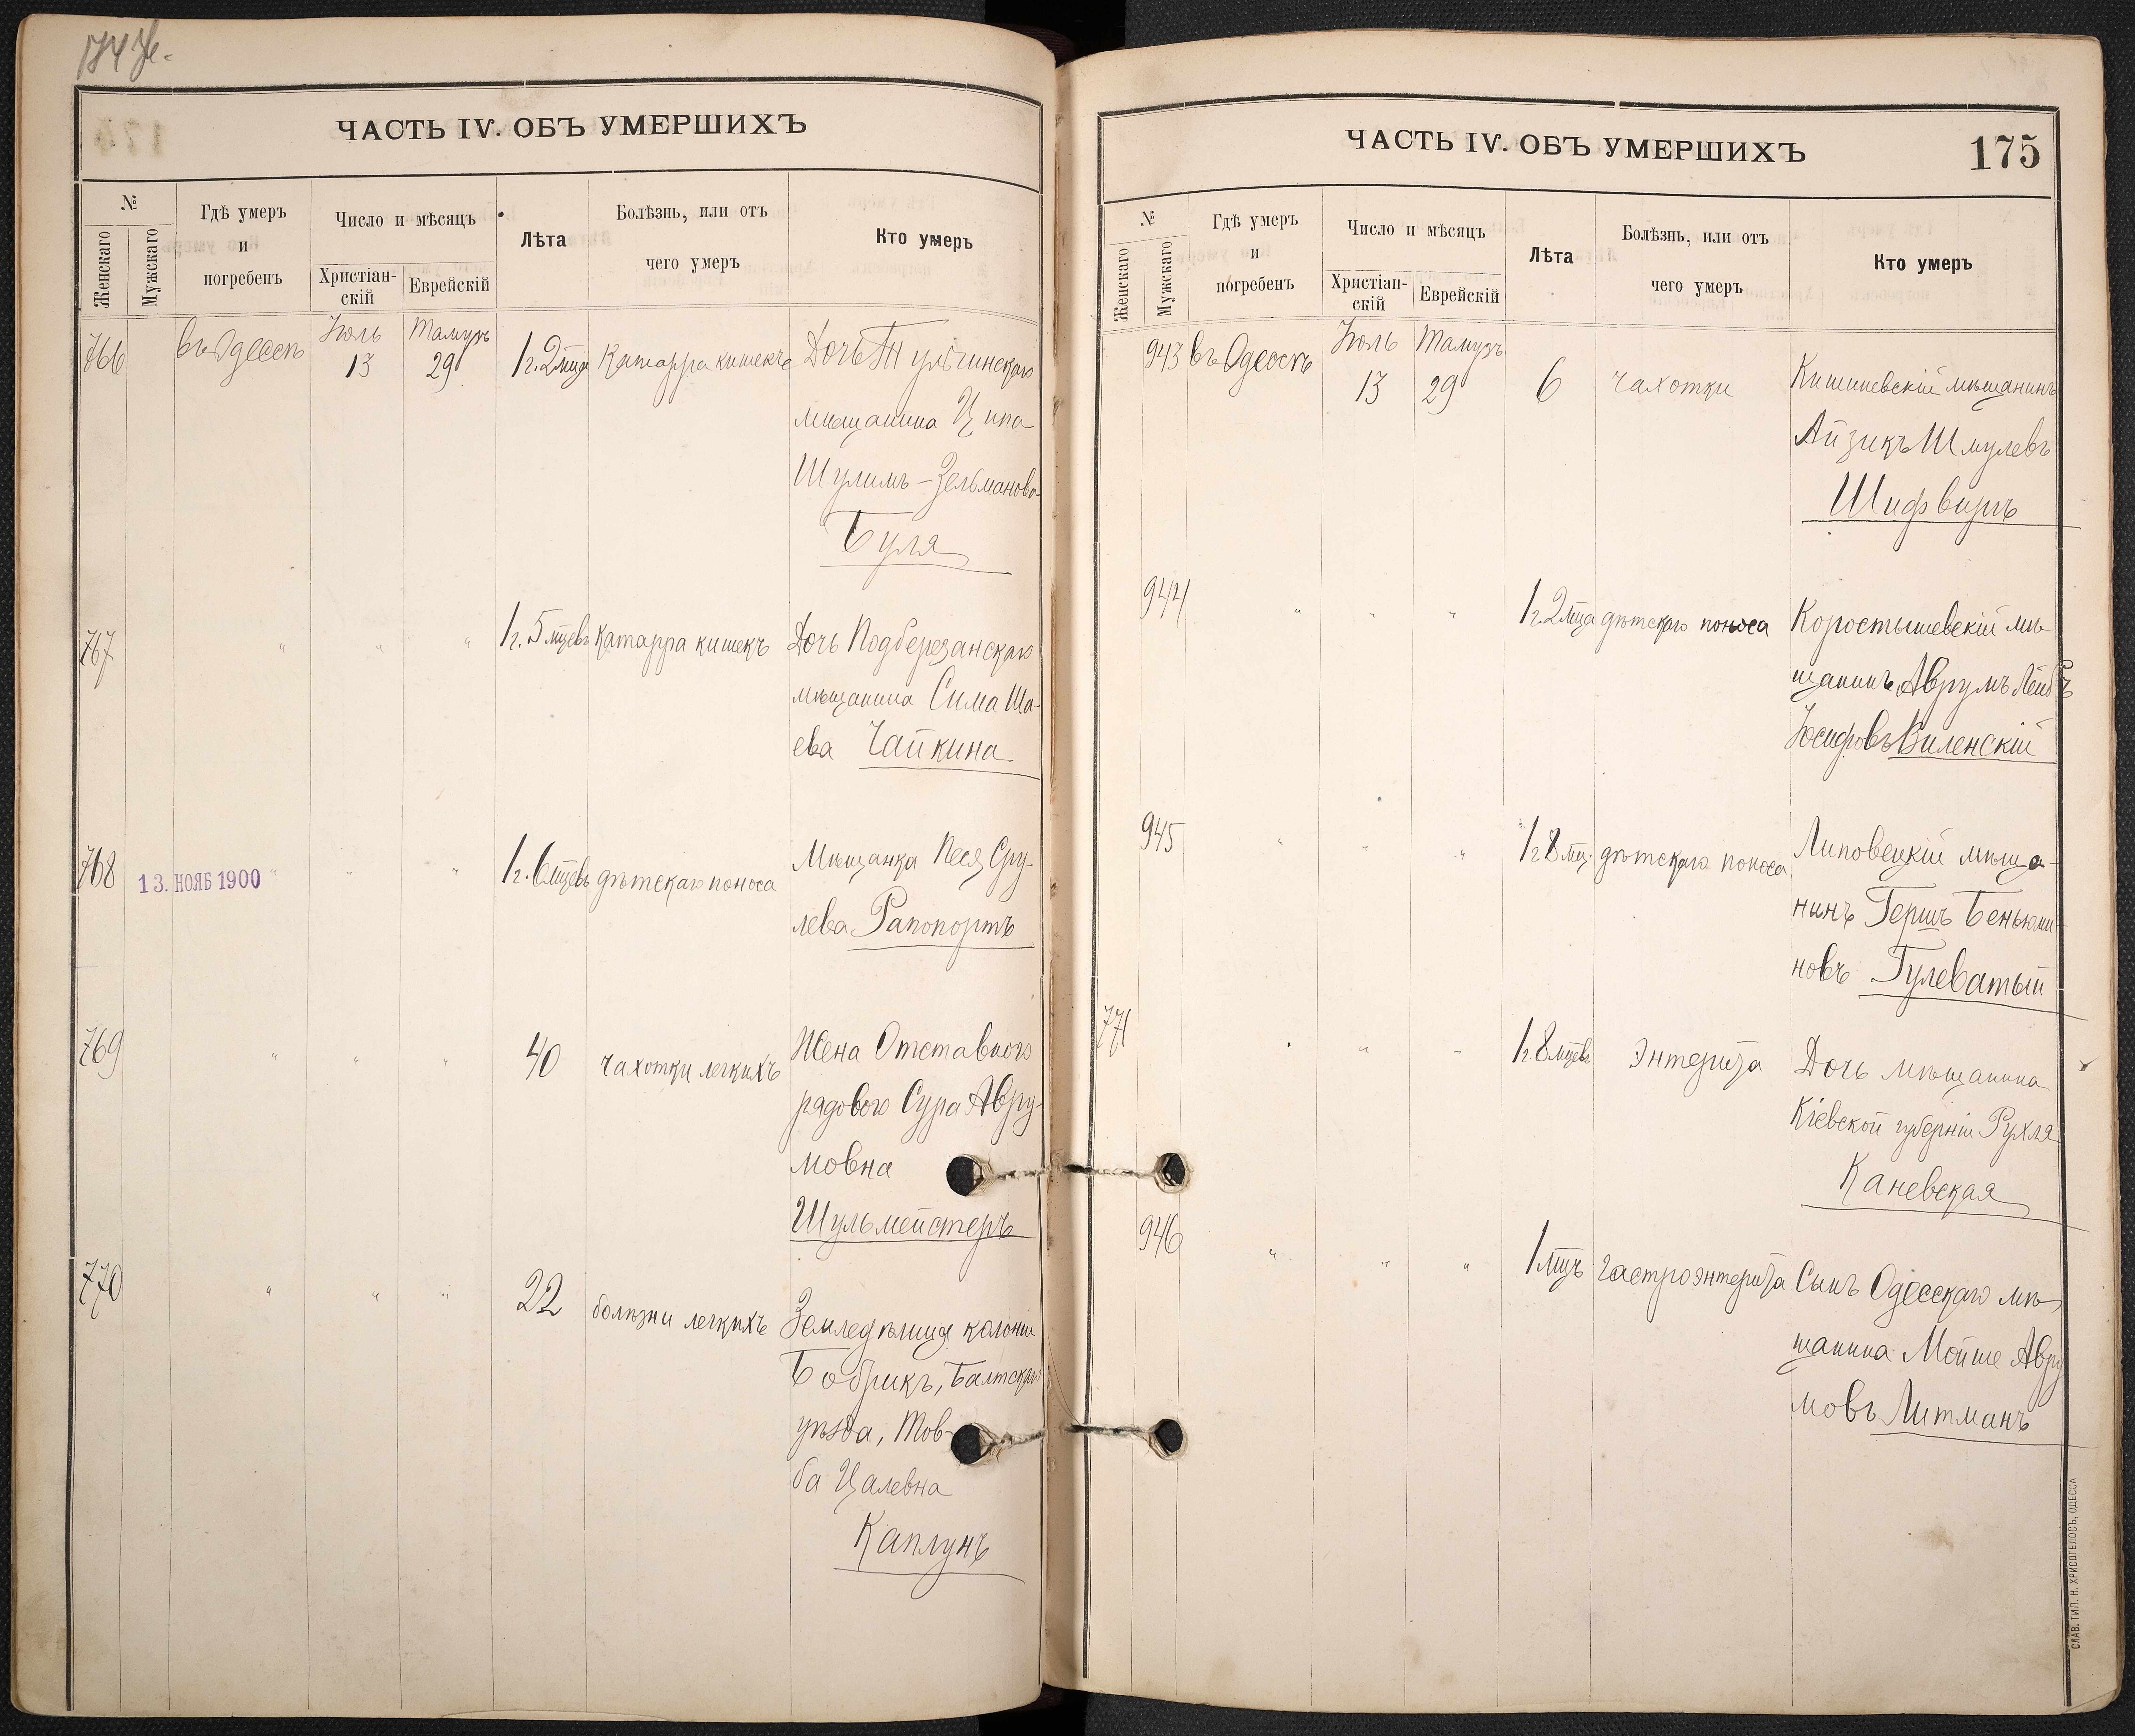 ЧАСТЬ IV. ОБЪ УМЕРШИХЪ
№
Женскаго
Мужскаго
Гдѣ умеръ
и
погребенъ
Число и мѣсяцъ
Христіан-
скій
Еврейскій
Лѣта
Болѣзнь, или отъ
чего умеръ
Кто умеръ
766 въ Одессѣ Іюль 13 Тамузъ 29 1 г. 2 мца Катарра кишекъ Дочь Тульчинскаго
мѣщанина Ципа
Шулимъ-Зельманова
Буля
767 " " " 1 г. 5 мцевъ Катарра кишекъ Дочь Подберезанскаго
мѣщанина Сима Ша-
ева Чайкина
768 13. НОЯБ 1900 " " " 1 г. 6 мцевъ дѣтскаго поноса Мѣщанка Песя Сру-
лева Рапопортъ
769 " " " 40 чахотки легкихъ Жена Отставного
рядового Сура Авру-
мовна
Шульмейстеръ
770 " " " 22 болѣзни легкихъ Земледѣлица колоніи
Бобрикъ, Балтскаго
уѣзда, Тов-
ба Цалевна
Каплунъ
ЧАСТЬ IV. ОБЪ УМЕРШИХЪ 175
№
Женскаго
Мужскаго
Гдѣ умеръ
и
погребенъ
Число и мѣсяцъ
Христіан-
скій
Еврейскій
Лѣта
Болѣзнь, или отъ
чего умеръ
Кто умеръ
943 въ Одессѣ Іюль 13 Тамузъ 29 6 чахотки Кишиневскій мѣщанинъ
Айзикъ Шмулевъ
Шифвиръ
944 " " " 1 г. 2 мца дѣтскаго поноса Коростышевскій мѣ-
щанинъ Аврумъ Лейбъ
Іосифовъ Виленскій
945 " " " 1 г 8 мц. дѣтскаго поноса Липовецкій мѣща-
нинъ Гершъ Беньями-
новъ Гулеватый
771 " " " 1 г. 8 мцевъ энтерита Дочь мѣщанина
Кіевской губерніи Рухля
Каневская
946 " " " 1 мцъ гастроэнтерита Сынъ Одесскаго мѣ-
щанина Мойше Авру
мовъ Литманъ
СЛАВ. ТИП. Н. ХРИСОГЕЛОСЪ, ОДЕССА